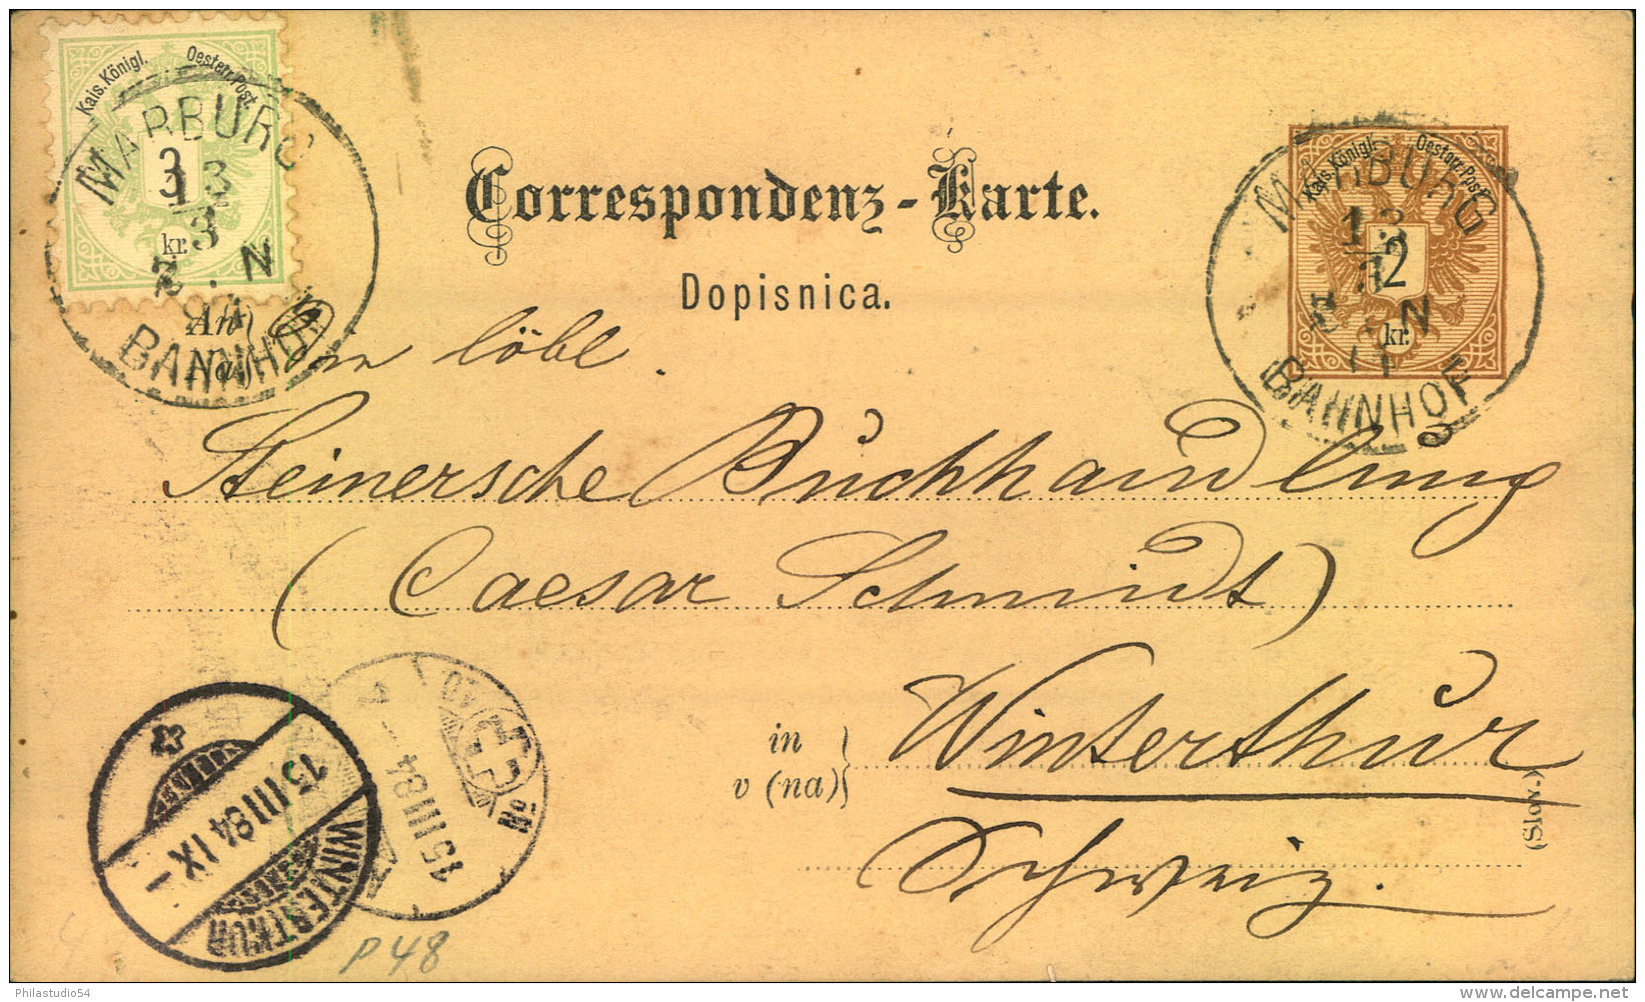 Kais. Königl. Oesterr. Post.
3
kr.
MARBURG
13
3
N
BAHNHOF
Kais. Königl. Oesterr. Post.
2
kr.
MARBURG
13
3
N
BAHNHOF
Correspondenz-Karte.
Dopisnica.
An
Na
löbl.
Steinersche Buchhandlung
(Caesar Schmidt)
in
v (na)
Winterthur
Schweiz.
(Slov.)
15 III 84 IX –
WINTERTHUR
15 III 84
No
P 48
Philastudio54
delcampe.net